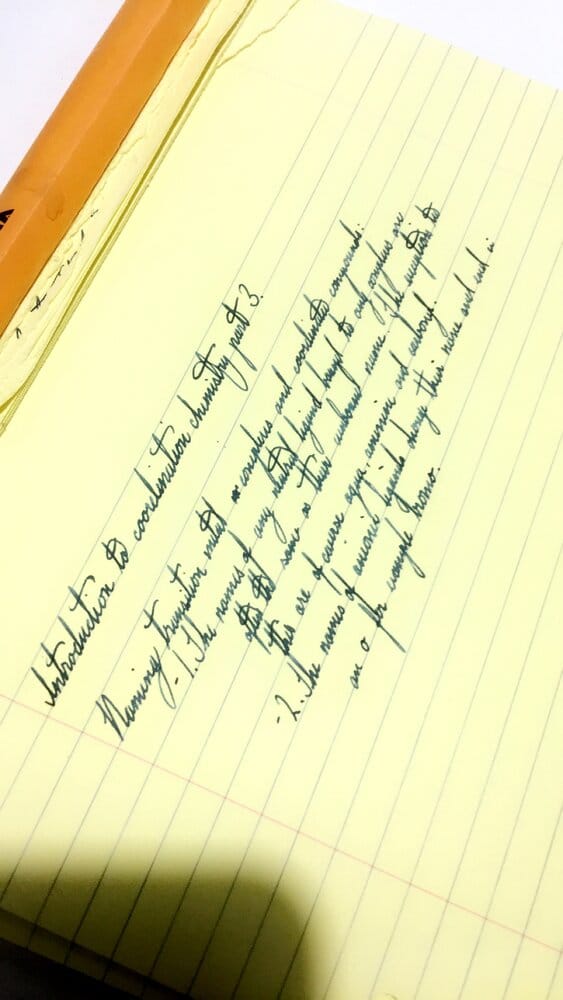 Introduction to coordination chemistry part 3.
Naming transition metal complexes and coordinated compounds:
-1. The names of any neutral ligand bound to any complex are
often the same as their unbound name. The exceptions to
this are of course aqua, ammine and carbonyl.
-2. The names of anionic ligands change their name and end in
an o for example bromo.